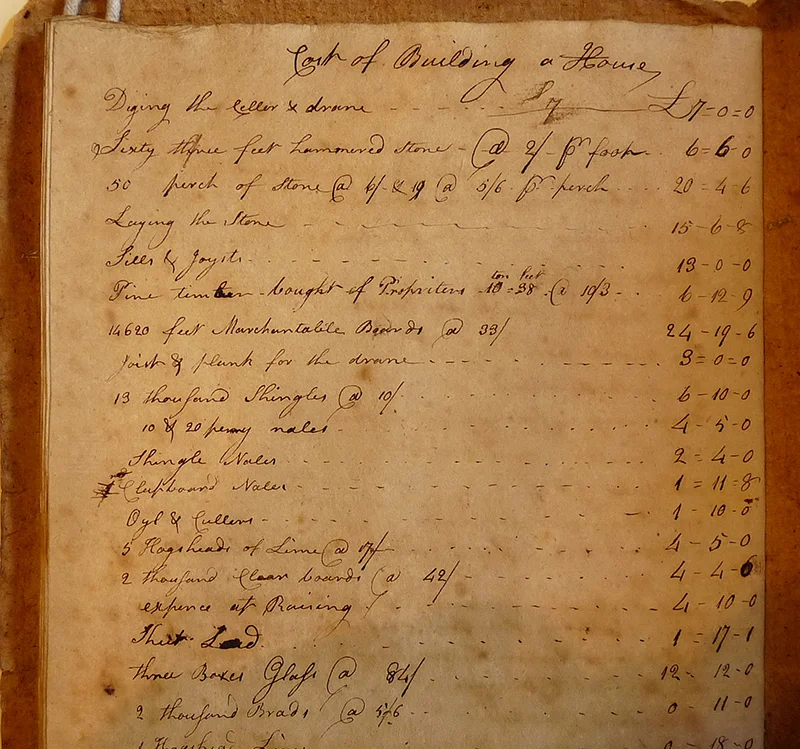 Cost of Building a House
Diging the Celler & drane - - - - £7 £7=0=0
Sixty three feet hammered stone - @ 2/ pr foot - - 6=6-0
50 perch of Stone @ 6/ & 19 @ 5/6 pr perch - - - - 20=4-6
Laying the Stone - - - - - 15-6-8
Sills & Joysts - - - - - 13-0-0
Pine timber bought of Propriters 10 ton = 38 feet @ 10/3 - - - 6-12-9
14620 feet Marchantable Boards @ 33/ 24-19-6
Joist & plank for the drane - - - - - 3=0=0
13 thousand Shingles @ 10/ - - - - 6-10-0
10 & 20 penny nales - 4-5-0
Shingle Nales - - - - - 2=4-0
Clapboard Nales - - - - - 1=11=8
Oyl & Cullers - - - - - 1-10-0
5 Hogsheads of Lime @ 17/ - - - - 4-5-0
2 thousand Clear boards @ 42/ - - - - 4-4-0
expence at Raising - - - - 4-10-0
Sheet Lead - - - - - 1=17-1
three Boxes Glass @ 84/ - - - - 12=12-0
2 thousand Brads @ 5/6 - - - - 0-11-0
1 Hogshead Lime 0-18-0